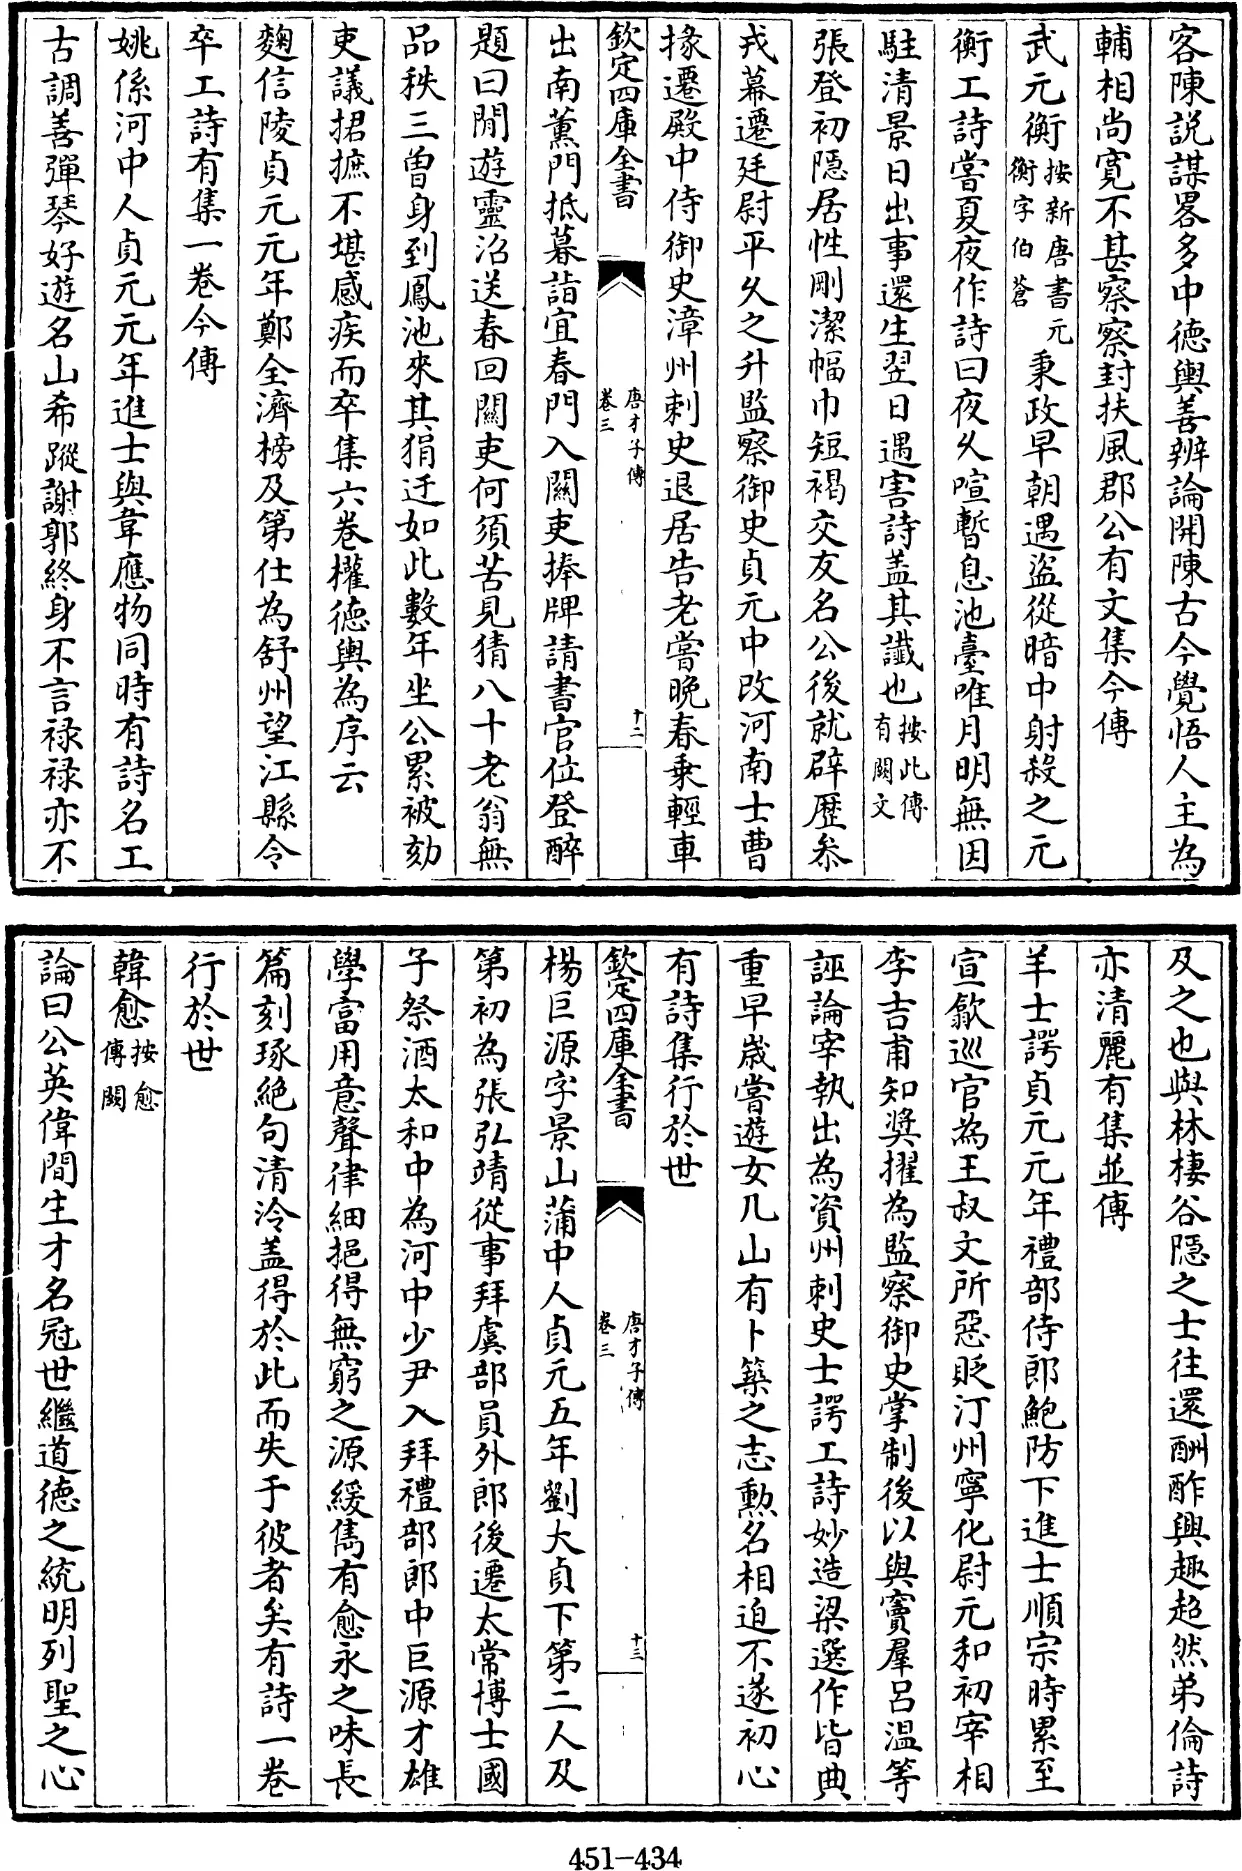 客陳説謀畧多中德輿善辨論開陳古今覺悟人主為
輔相尚寛不甚察察封扶風郡公有文集今傳
武元衡按新唐書元衡字伯蒼秉政早朝遇盜從暗中射殺之元
衡工詩嘗夏夜作詩曰夜久喧暫息池臺唯月明無因
駐清景日出事還生翌日遇害詩盖其讖也按此傳有闕文
張登初隱居性剛潔幅巾短褐交友名公後就辟歴叅
戎幕遷廷尉平久之升監察御史貞元中改河南士曹
掾遷殿中侍御史漳州刺史退居告老嘗晩春乗輕車
欽定四庫全書
唐才子傳
卷三
十二
出南薰門抵暮詣宜春門入關吏捧牌請書官位登醉
題曰閒遊靈沼送春回關吏何須苦見猜八十老翁無
品秩三曽身到鳳池來其狷迂如此數年坐公累被劾
吏議捃摭不堪感疾而卒集六卷權德輿為序云
麴信陵貞元元年鄭全濟榜及第仕為舒州望江縣令
卒工詩有集一卷今傳
姚係河中人貞元元年進士與韋應物同時有詩名工
古調善彈琴好遊名山希蹤謝郭終身不言禄禄亦不
及之也與林棲谷隠之士往還酬酢興趣超然弟倫詩
亦清麗有集並傳
羊士諤貞元元年禮部侍郎鮑防下進士順宗時累至
宣歙巡官為王叔文所惡貶汀州寧化尉元和初宰相
李吉甫知奬擢為監察御史掌制後以與竇羣吕温等
誣論宰執出為資州刺史士諤工詩妙造梁選作皆典
重早歳嘗遊女几山有卜築之志勲名相迫不遂初心
有詩集行於世
欽定四庫全書
唐才子傳
卷三
十三
楊巨源字景山蒲中人貞元五年劉大貞下第二人及
第初為張弘靖從事拜虞部員外郎後遷太常博士國
子祭酒太和中為河中少尹入拜禮部郎中巨源才雄
學富用意聲律細挹得無窮之源緩雋有愈永之味長
篇刻琢絶句清泠盖得於此而失于彼者矣有詩一卷
行於世
韓愈按愈傳闕
論曰公英偉間生才名冠世繼道德之統明列聖之心
451-434